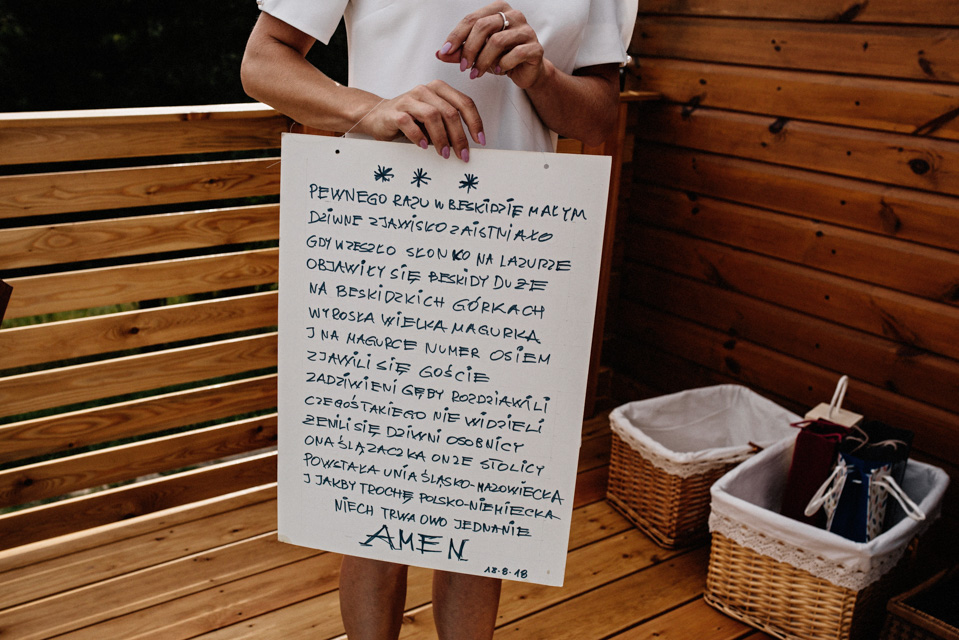 * * *
PEWNEGO RAZU W BESKIDZIE MAŁYM
DZIWNE ZJAWISKO ZAISTNIAŁO
GDY WZESZŁO SŁONKO NA LAZURZE
OBJAWIŁY SIĘ BESKIDY DUŻE
NA BESKIDZKICH GÓRKACH
WYROSŁA WIELKA MAGURKA
J NA MAGURCE NUMER OSIEM
ZJAWILI SIĘ GOŚCIE
ZADZIWIENI GĘBY ROZDZIAWILI
CZEGOŚ TAKIEGO NIE WIDZIELI
ŻENILI SIĘ DZIWNI OSOBNICY
ONA ŚLĄZACZKA ON ZE STOLICY
POWSTAŁA UNIA ŚLĄSKO-MAZOWIECKA
J JAKBY TROCHĘ POLSKO-NIEMIECKA
NIECH TRWA OWO JEDNANIE
AMEN
18-8-18